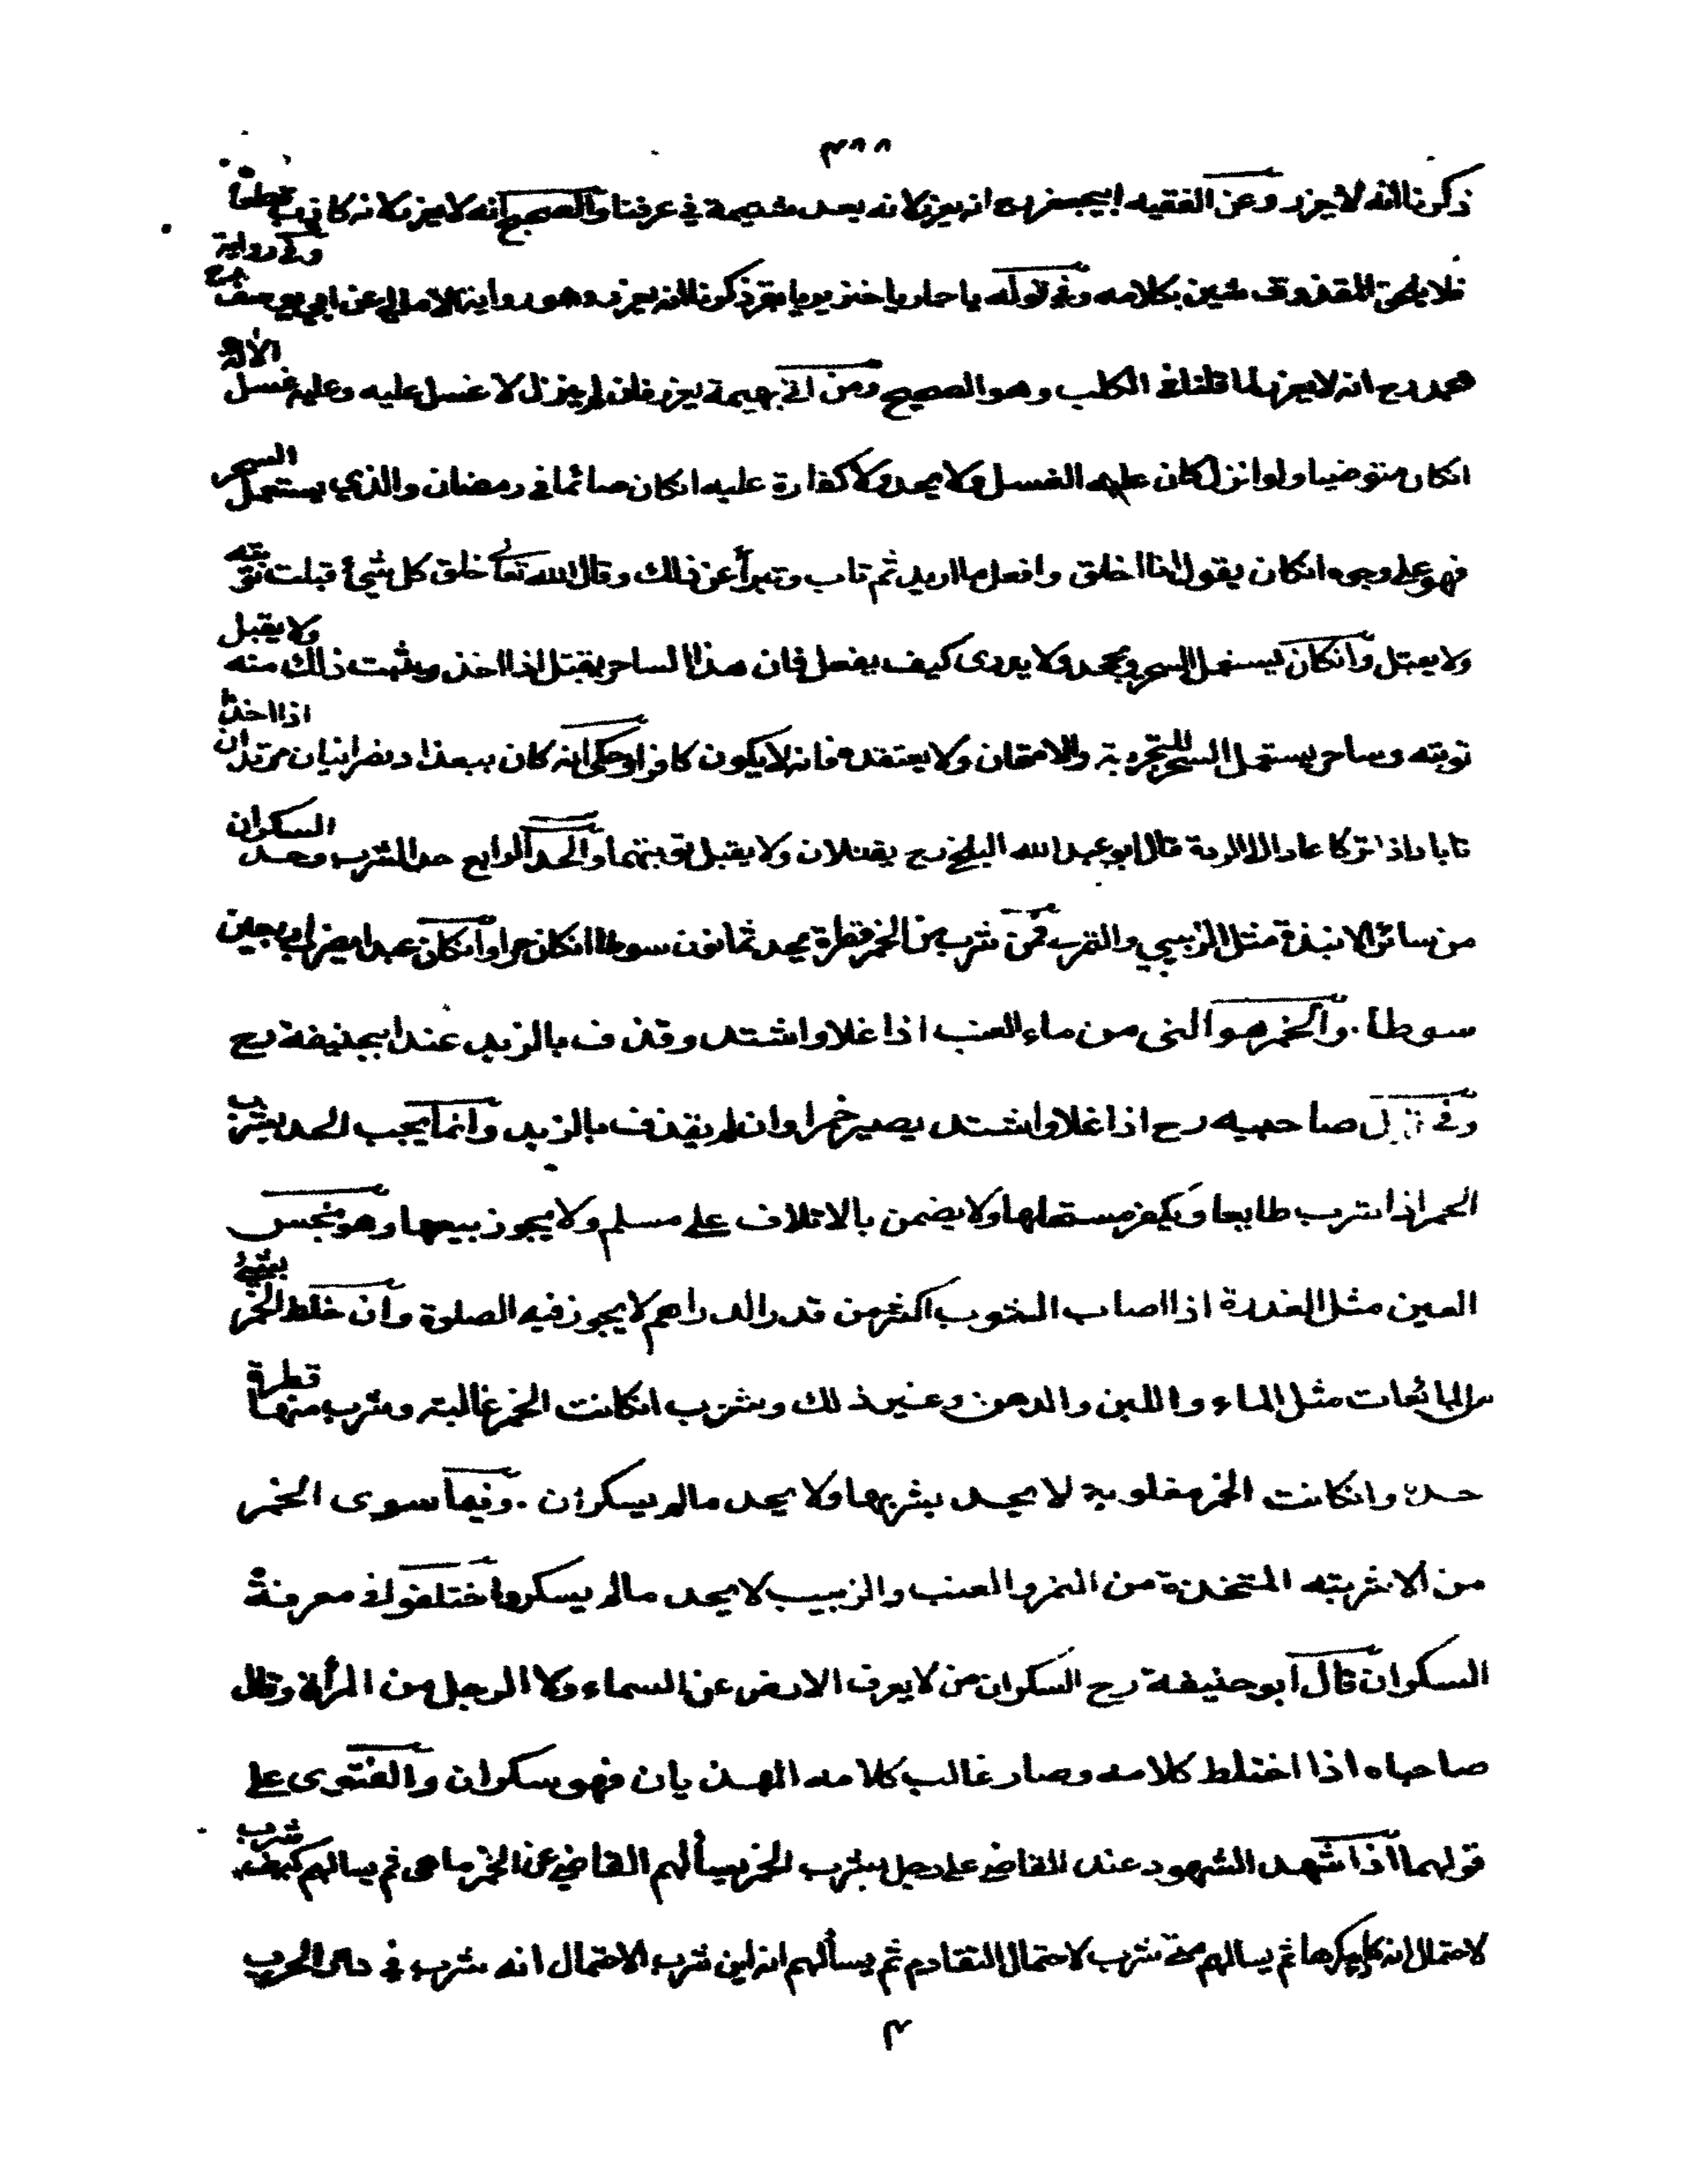 ٣٨٨
ذكرنا انه لا يعزر وعن الفقيه ابيجعفر رح انه يعزر لانه يعد شتيمة في عرفنا والصحيح انه لا يعزر لانه كاذب قطعا
فلا يلحق المقذوف شين بكلامه وفي قوله يا حمار يا خنزير يا بقر ذكرنا انه يعزر وهو رواية الامالي عن ابي يوسف رح وفي رواية
محمد رح انه لا يعزر لما قلنا في الكلب وهو الصحيح ومن اتى بهيمة يعزر فان لم ينزل لا غسل عليه وعليه غسل الآلة
انكان متوضيا ولو انزل كان عليه الغسل ولا يحد ولا كفارة عليه انكان صائما في رمضان والذي يستعمل السحر
فهو على وجوه انكان يقول انا اخلق وافعل ما اريد ثم تاب وتبرأ عن ذلك وقال الله تعالى خلق كل شئ قبلت توبته
ولا يقتل وانكان يستعمل السحر ويجحد ولا يدرى كيف يفعل فان هذا الساحر يقتل اذا اخذ ويثبت ذلك منه ولا يقبل
توبته وساحر يستعمل السحر للتجربة والامتحان ولا يعتقد فانه لا يكون كافرا وحكى انه كان ببغداد نصرانيان مرتدان اذا اخذا
تابا واذا تركا عادا الى الردة قال ابو عبد الله البلخي رح يقتلان ولا يقبل توبتهما والحد الرابع حد الشرب وحد السكران
من سائر الانبذة مثل الزبيبي والتمر فمن شرب من الخمر قطرة يحد ثمانون سوطا انكان حرا وانكان عبدا يضرب اربعين
سوطا . والخمر هو النى من ماء العنب اذا غلا واشتد وقذف بالزبد عند ابيحنيفة رح
وفي قول صاحبيه رح اذا غلا واشتد يصير خمرا وان لم يقذف بالزبد وانما يجب الحد بشرب
الخمر اذا شرب طايعا ويكفر مستحلها ولا يضمن بالاتلاف على مسلم ولا يجوز بيعها وهو نجس
العين مثل العذرة اذا اصاب الثوب اكثر من قدر الدراهم لا يجوز فيه الصلوة وان خلط الخمر بشئ
من المائعات مثل الماء واللبن والدهن وغير ذلك وشرب انكانت الخمر غالبته وشرب منها قطرة
حد وانكانت الخمر مغلوبة لا يحد بشربها ولا يحد مالم يسكران . وفيما سوى الخمر
من الاشربته المتخذة من التمر والعنب والزبيب لا يحد مالم يسكر واختلفوا في معرفة
السكران قال ابو حنيفة رح السكران من لا يعرف الارض عن السماء ولا الرجل من المرأة وقال
صاحباه اذا اختلط كلامه وصار غالب كلامه الهذيان فهو سكران والفتوى على
قولهما اذا شهد الشهود عند القاضي على رجل بشرب الخمر يسألهم القاضي عن الخمر ما هى ثم يسالهم كيف شرب
لاحتمال انه كان مكرها ثم يسالهم متى شرب لاحتمال التقادم ثم يسألهم انه اين شرب لاحتمال انه شرب في دار الحرب
م